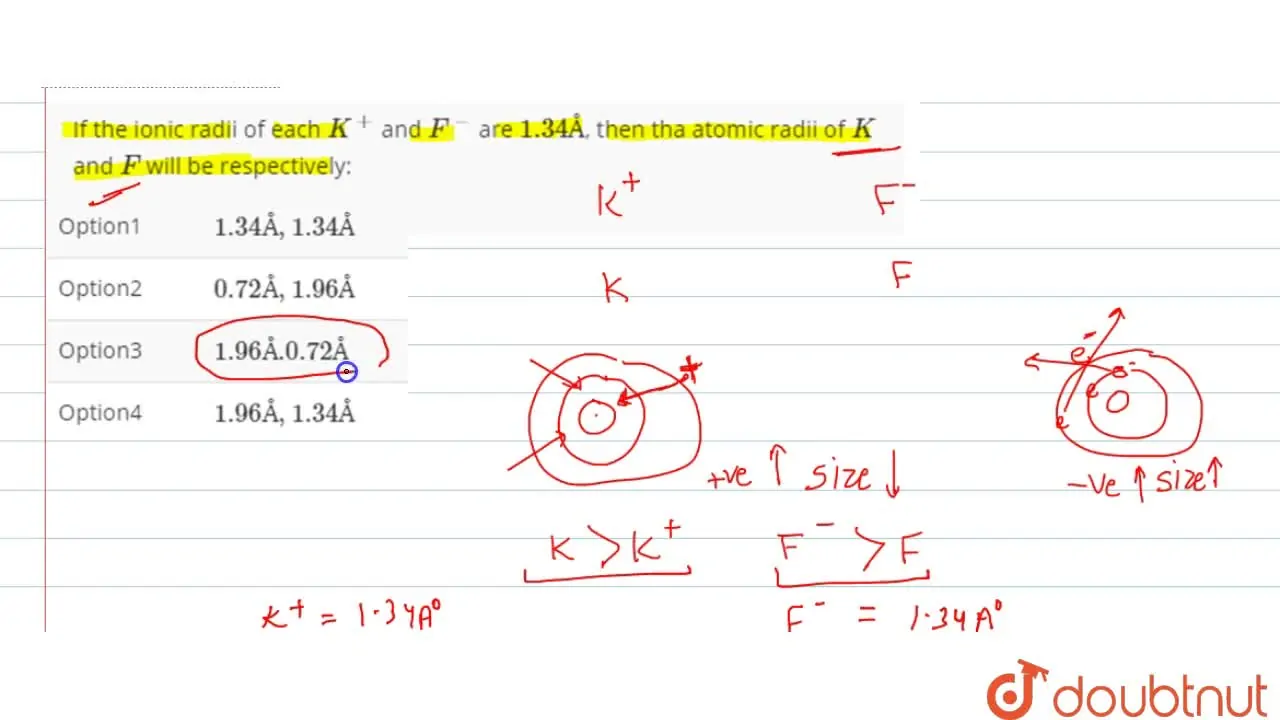 If the ionic radii of each K⁺ and F⁻ are 1.34Å, then tha atomic radii of K
and F will be respectively:
K⁺ F⁻
Option1 1.34Å, 1.34Å
K F
Option2 0.72Å, 1.96Å
Option3 1.96Å.0.72Å
Option4 1.96Å, 1.34Å
e⁻
e⁻
e
e
+ve ↑ size ↓
-ve ↑ size ↑
K > K⁺ F⁻ > F
K⁺ = 1.34A° F⁻ = 1.34A°
doubtnut